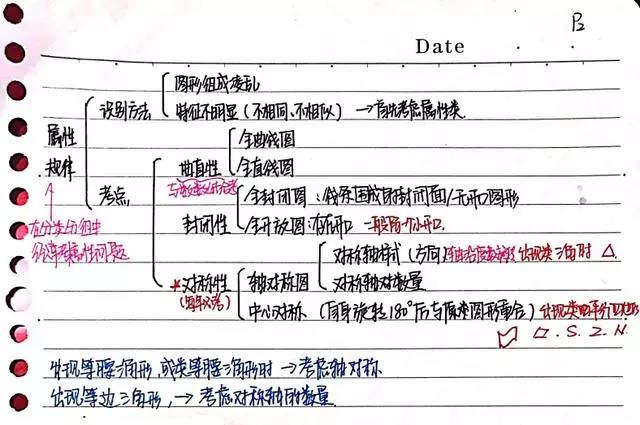 B2
Date
图形组成凌乱
识别方法
特征不明显（不相同、不相似）→首先考虑属性类
属性
规律
全曲线图
曲直性
全直线图
考点
全封闭图：线条围成的封闭面/无开口图形
封闭性
全开放图：有开口 一般留个小开口.
在分类分组中
经常考属性问题
对称轴样式（方向） 出现类三角时 △
轴对称图
★对称性
对称轴对数量
中心对称（自身旋转180°后与原来图形重合）出现类平行四边形
▱.S.Z.N.
出现等腰三角形,或类等腰三角形时→考虑轴对称
出现等边三角形,→考虑对称轴的数量